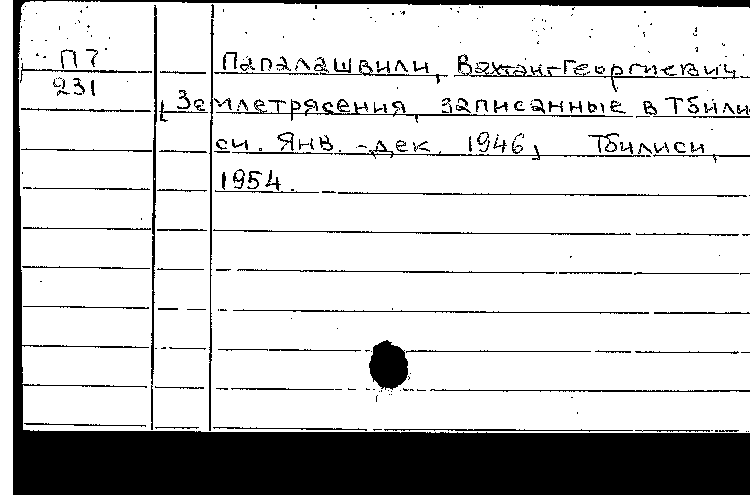 П7 Папалашвили, Вахтанг Георгиевич
231
Землетрясения, записанные в Тбили
си. Янв. - дек. 1946, Тбилиси,
1954.